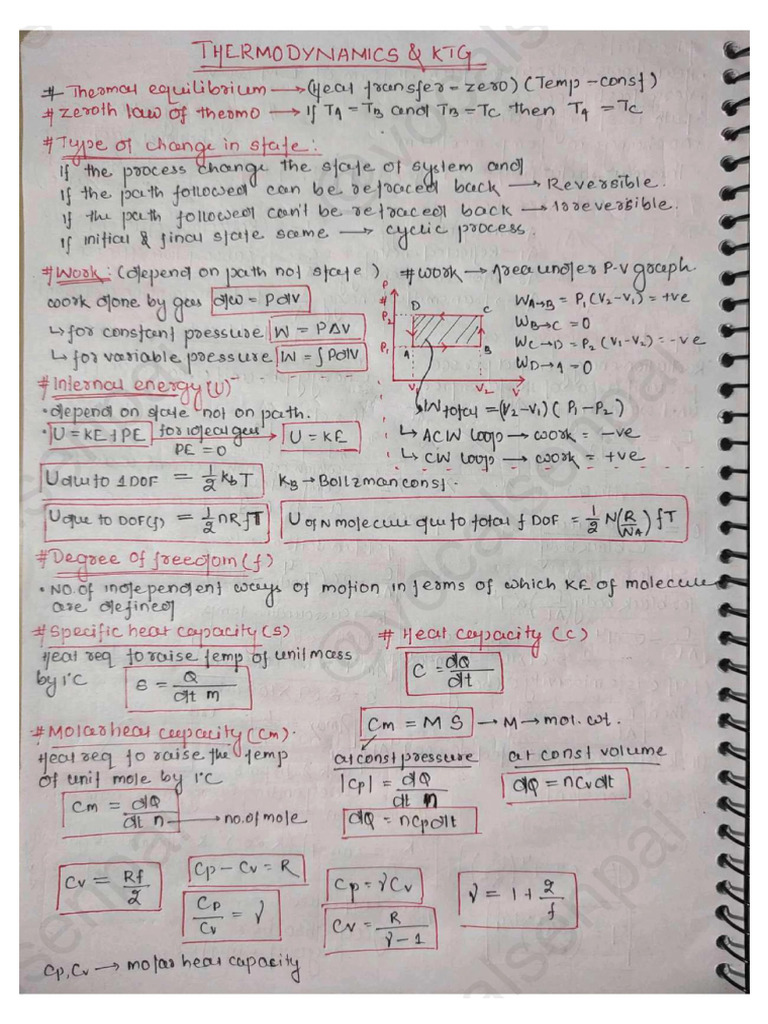 THERMODYNAMICS & KTG
# Thermal equilibrium → (Heat transfer - zero) (Temp - const)
# Zeroth law of thermo → If TA = TB and TB = TC then TA = TC
# Type of change in state:
If the process change the state of system and
If the path followed can be retraced back → Reversible.
If the path followed can't be retraced back → Irreversible.
If initial & final state same → cyclic process.
# Work: (depend on path not state)
work done by gas dw = PdV
↳ for constant pressure W = PΔV
↳ for variable pressure W = ∫PdV
# work → Area under P-V graph
P
P2
P1
D
C
A
B
V1
V2
V
WA→B = P1 (V2 - V1) = +ve
WB→C = 0
WC→D = P2 (V1 - V2) = -ve
WD→A = 0
W total = (V2 - V1) (P1 - P2)
↳ ACW loop → work = -ve
↳ CW loop → work = +ve
# Internal energy (U)
• depend on state not on path.
• U = KE + PE for ideal gas PE = 0 → U = KE
U due to 1 DOF = 1/2 kbT
KB → Boltzman const.
U due to DOF(f) = 1/2 nRfT
U of N molecule due to total f DOF = 1/2 N(R/NA) fT
# Degree of freedom (f)
• NO. of independent ways of motion in terms of which KE of molecule
are defined
# Specific heat capacity (s)
Heat req to raise temp of unit mass
by 1°C
s = Q/dt m
# Heat capacity (C)
C = dQ/dt
# Molar heat capacity (Cm).
Heat req to raise the temp
of unit mole by 1°C
Cm = dQ/dt n → no. of mole
Cm = M S → M → mol. wt.
at const pressure
|Cp| = dQ/dt n
dQ = nCpdt
at const volume
dQ = nCvdt
Cv = Rf/2
Cp - Cv = R
Cp/Cv = γ
Cp = γCv
Cv = R/γ-1
γ = 1 + 2/f
Cp, Cv → molar heat capacity
@vocalsenpai